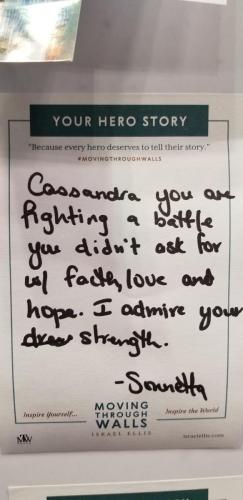 YOUR HERO STORY
"Because every hero deserves to tell their story."
#MOVINGTHROUGHWALLS
Cassandra you are
fighting a battle
you didn't ask for
w/ faith, love and
hope. I admire your
strength.
-Sonnetta
Inspire Yourself...
MOVING
THROUGH
WALLS
ISRAEL ELLIS
Inspire the World
israelellis.com